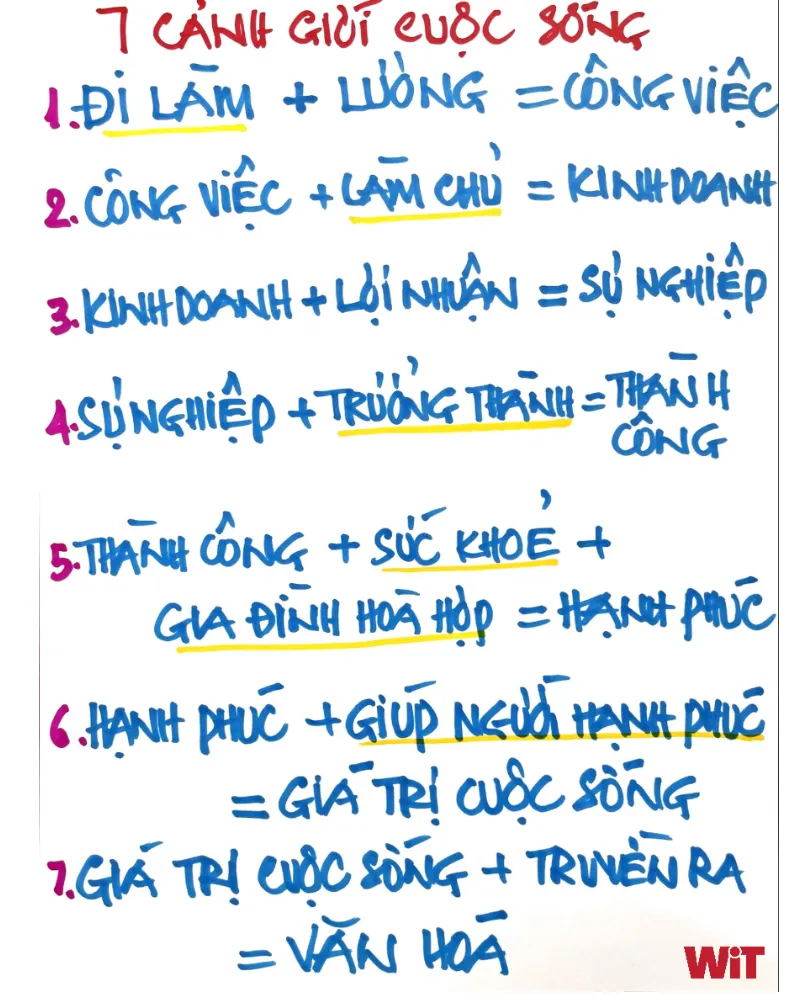 7 CẢNH GIỚI CUỘC SỐNG
1. ĐI LÀM + LƯƠNG = CÔNG VIỆC
2. CÔNG VIỆC + LÀM CHỦ = KINH DOANH
3. KINH DOANH + LỢI NHUẬN = SỰ NGHIỆP
4. SỰ NGHIỆP + TRƯỞNG THÀNH = THÀNH
CÔNG
5. THÀNH CÔNG + SỨC KHOẺ +
GIA ĐÌNH HOÀ HỢP = HẠNH PHÚC
6. HẠNH PHÚC + GIÚP NGƯỜI HẠNH PHÚC
= GIÁ TRỊ CUỘC SỐNG
7. GIÁ TRỊ CUỘC SỐNG + TRUYỀN RA
= VĂN HOÁ
WiT